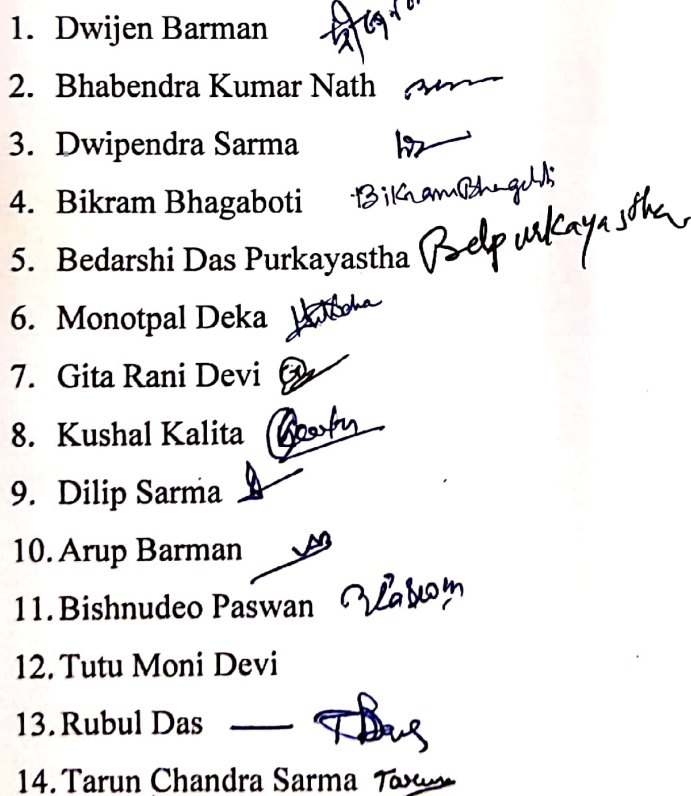 1. Dwijen Barman
2. Bhabendra Kumar Nath
3. Dwipendra Sarma
4. Bikram Bhagaboti Bikram Bhagabati
5. Bedarshi Das Purkayastha Bdpurkayastha
6. Monotpal Deka
7. Gita Rani Devi
8. Kushal Kalita
9. Dilip Sarma
10. Arup Barman
11. Bishnudeo Paswan
12. Tutu Moni Devi
13. Rubul Das —
14. Tarun Chandra Sarma Tarun